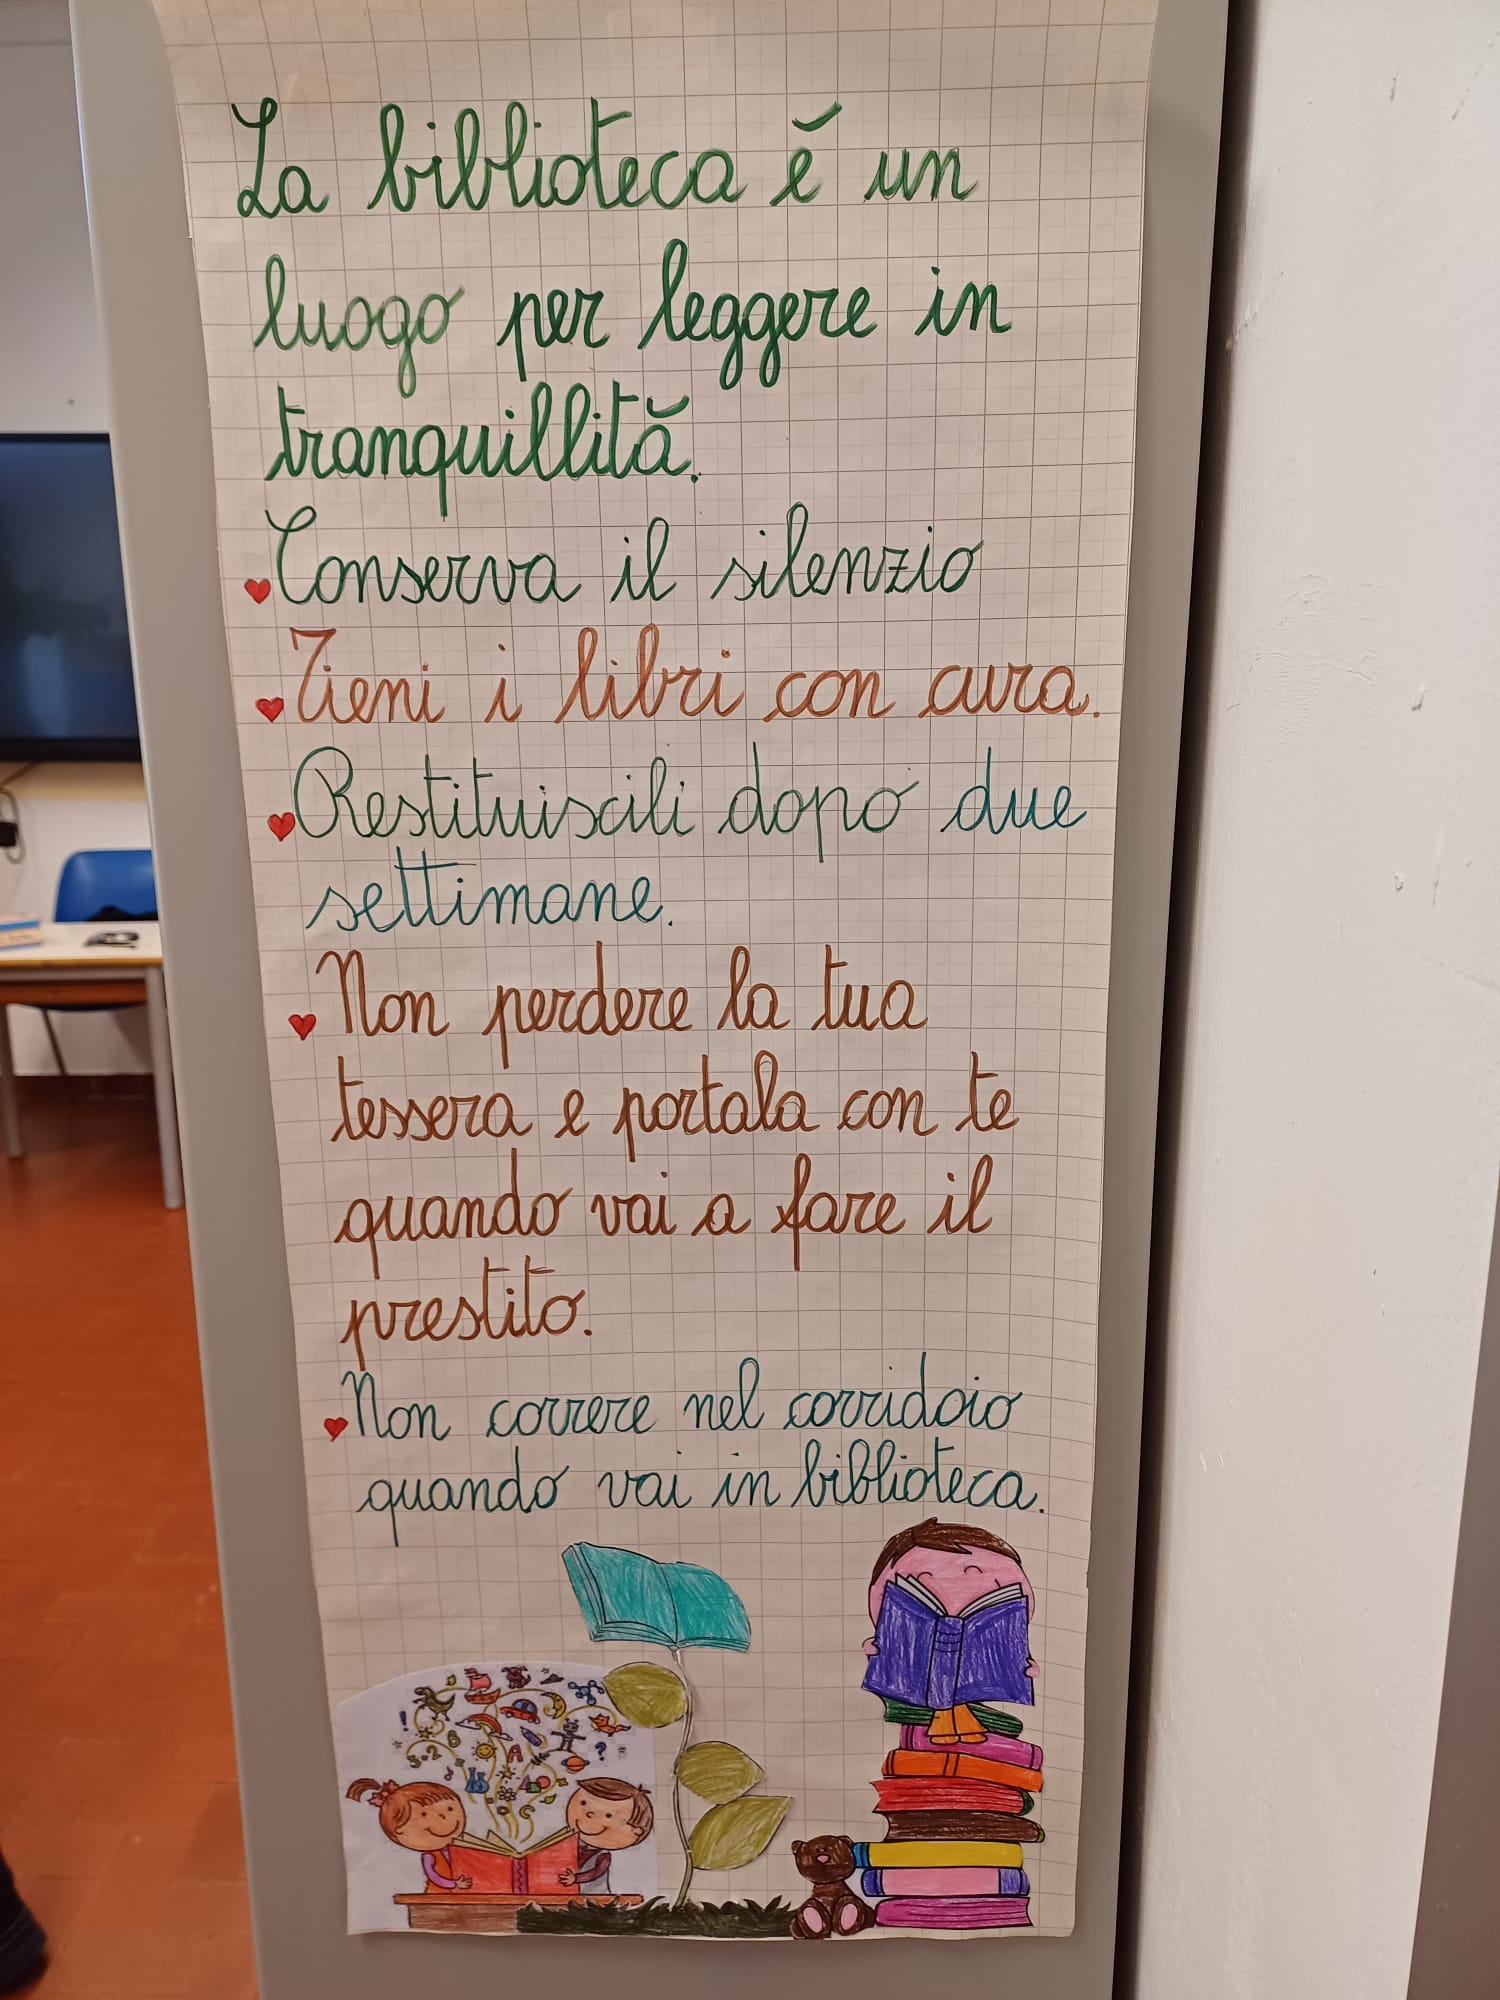 La biblioteca è un
luogo per leggere in
tranquillità.
Conserva il silenzio
Tieni i libri con cura.
Restituiscili dopo due
settimane.
Non perdere la tua
tessera e portala con te
quando vai a fare il
prestito.
Non correre nel corridoio
quando vai in biblioteca.